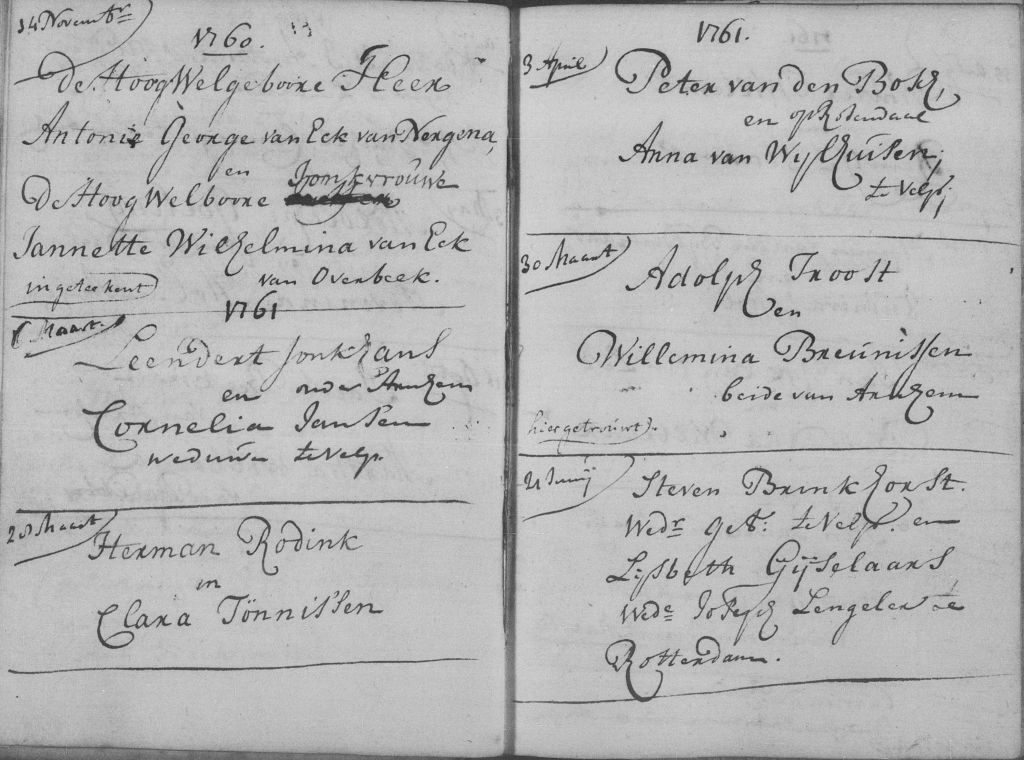 14 Novembr
1760.
De Hoog Welgeboore Heer
Antonie George van Eck van Nergena,
en
De Hoog Welboore Jonkvrouwe
Jannette Wilhelmina van Eck
van Overbeek.
ingeteekent
1761
Maart.
Leendert Jonkhans
en onder Arnhem
Cornelia Jansen
weduwe te Velp.
28 Maart
Herman Rodink
in
Clara Tönnissen
1761.
3 April
Peter van den Bokh,
en op Rosendaal
Anna van Wylhuisen,
te Velp,
30 Maart
Adolph Troost
en
Willemina Breunissen
beide van Arnhem
hier getrouwt.
21 Junij
Steven Brinkhorst.
Wedr get: te Velp. en
Lijsbeth Gijselaars,
Wede Joseph Lengeler te
Rotterdam.